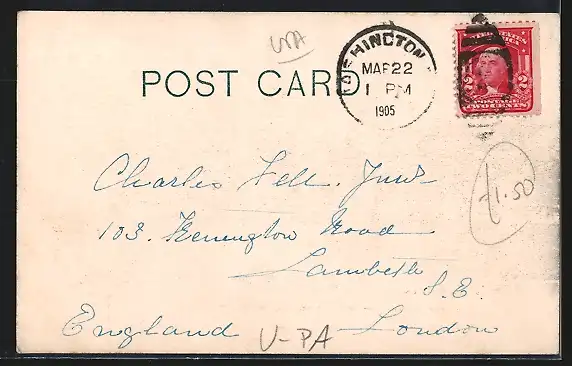 USA
POST CARD
WASHINGTON
MAR 22
1 PM
1905
UNITED STATES
AMERICA
2 2
POSTAGE
TWO CENTS
Charles Fell. Junr
1.50
103. Kennington Road
Lambeth
S.E.
England London
U-PA